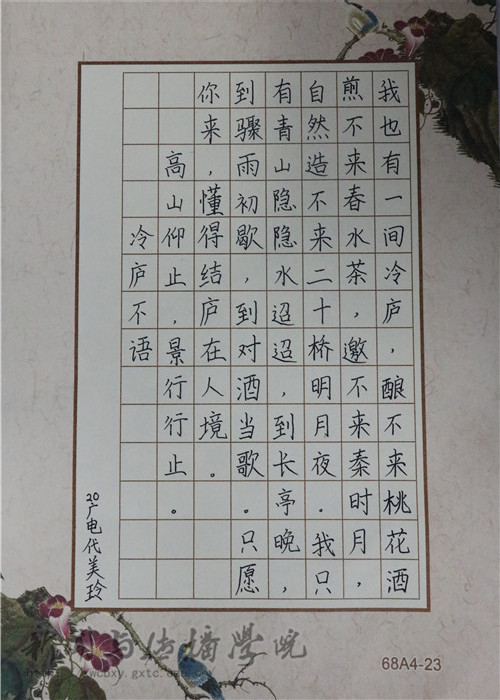 我也有一间冷庐，酿不来桃花酒
煎不来春水茶，邀不来秦时月，
自然造不来二十桥明月夜。我只
有青山隐隐水迢迢，到长亭晚，
到骤雨初歇，到对酒当歌。只愿
你来，懂得结庐在人境。
高山仰止，景行行止。
冷庐不语
20广电代美玲
新闻与传播学院
68A4-23